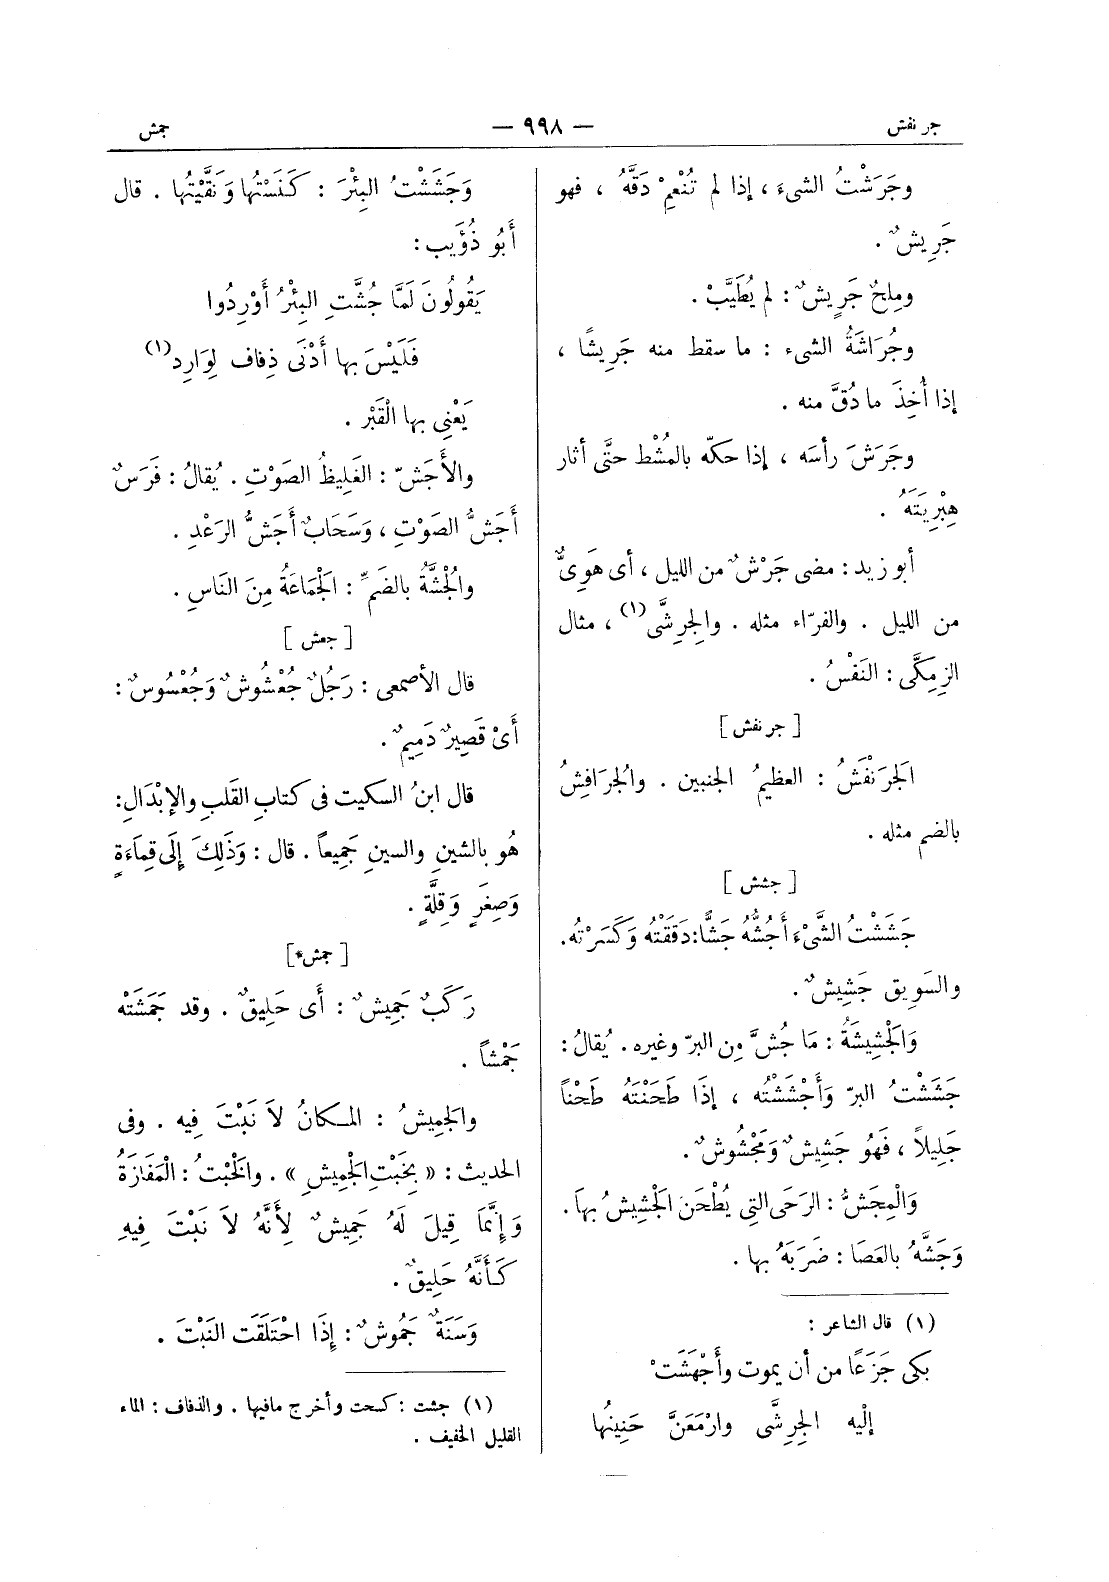 جرنفش — ٩٩٨ — جمش
وجَرَشْتُ الشىءَ ، إذا لم تُنْعِمْ دَقَّهُ ، فهو
جَرِيشٌ .
وملِحٌ جَرِيشٌ : لم يُطَيَّبْ .
وجُرَاشَةُ الشىء : ما سقط منه جَرِيشًا ،
إذا أُخِذَ ما دُقَّ منه .
وجَرَشَ رأسَه ، إذا حكّه بالمُشْط حتَّى أثار
هِبْرِيَتَهُ .
أبو زيد : مضى جَرْشٌ من الليل ، أى هَوِىٌّ
من الليل . والفرّاء مثله . والِجرِشَّى (١) ، مثال
الزِمِكَّى : النَفْسُ .
[ جرنفش ]
الَجرَنْفَشُ : العظيمُ الجنبين . والُجرَافِشُ
بالضم مثله .
[ جشش ]
جَشَشْتُ الشَّىْءَ أَجُشُّهُ جَشًّا : دَقَقْتُه وَكَسَرْتُه .
والسَوِيق جَشِيشٌ .
وَالْجَشِيشَةُ : مَا جُشَّ مِن البرّ وغيره . يُقالُ :
جَشَشْتُ البرّ وَأَجْشَشْتُه ، إذَا طَحَنْتَهُ طَحْناً
جَلِيلاً ، فَهُو جَشِيشٌ وَمَجْشُوشٌ .
وَالْمِجَشُّ : الرَحَى التِى يُطْحَن الْجَشِيشُ بهاَ .
وَجَشَّهُ بالعَصَا : ضَرَبَهُ بها .
(١) قال الشاعر :
بكى جَزَعًا من أن يموت وأَجْهَشَتْ
إلَيه الِجرِشَّى وارْمَعَنَّ حَنِينُها
وَجَشَشْتُ البِئْرَ : كَنَسْتُها وَنَقَّيْتُها . قال
أَبُو ذُؤَيب :
يَقُولُونَ لَمَّا جُشَّتِ البِئْرُ أَوْرِدُوا
فَلَيْسَ بها أَدْنَى ذِفاف لِوَارِدِ (١)
يَعْنِى بها الْقَبْر .
والأَجَشّ : الغَلِيظُ الصَوْتِ . يُقالُ : فَرَسٌ
أَجَشُّ الصَوْتِ ، وَسَحَابٌ أَجَشُّ الرَعْدِ .
والْجُشَّةُ بالضَمِّ : الْجَمَاعَةُ مِنَ النَاسِ .
[ جعش ]
قال الأصمعى : رَجُلٌ جُعْشُوشٌ وَجُعْسُوسٌ :
أَىْ قَصِيرٌ دَمِيمٌ .
قال ابنُ السكيت فى كتابِ القَلبِ والإبْدَالِ :
هُو بالشينِ والسينِ جَمِيعاً . قال : وَذَلِكَ إلَى قَماَءَةٍ
وَصِغَرٍ وَقِلَّةٍ .
[ جمش* ]
رَكَبٌ جَمِيشٌ : أَى حَلِيقٌ . وقد جَمَشَتْه
جَمْشاً .
والَجمِيشُ : المكانُ لاَ نَبْتَ فِيه . وفى
الحديث : « بِخَبْتِ الْجَمِيشِ » . والَخْبتُ : الْمَفَازَةُ
وَإِنَّمَا قِيلَ لَهُ جَمِيشٌ لِأَنَّهُ لاَ نَبْتَ فِيهِ
كَأَنَّهُ حَلِيقٌ .
وَسَنَةٌ جَمُوشٌ : إذَا احْتَلَقَت النَبْتَ .
(١) جشت : كسحت وأخرج مافيها . والذفاف : الماء
القليل الخفيف .